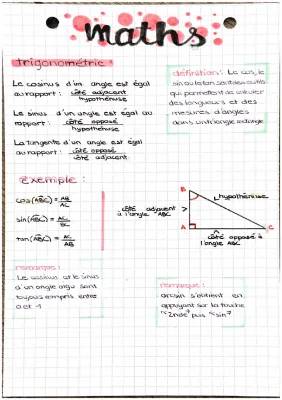 maths
trigonométrie :
Le cosinus d'un angle est égal
au rapport : côté adjacent
hypothénuse
Le sinus d'un angle est égal au
rapport : côté opposé
hypothénuse
La tangente d'un angle est égal
au rapport : côté opposé
côté adjacent
définition : Le cos, le
sin ou la tan sont des outils
qui permettent de calculer
des longueurs et des
mesures d'angles
dans un triangle rectangle
Exemple :
cos(ABC) = AB
BC
sin(ABC) = AC
BC
tan(ABC) = AC
AB
côté adjacent >
à l'angle ABC
B
hypothénuse
A
C
côté opposé à
l'angle ABC
remarque :
Le cosinus et le sinus
d'un angle aigu sont
toujours compris entre
0 et 1
remarque :
arcsin s'obtient en
appuyant sur la touche
"2nde" puis "sin"